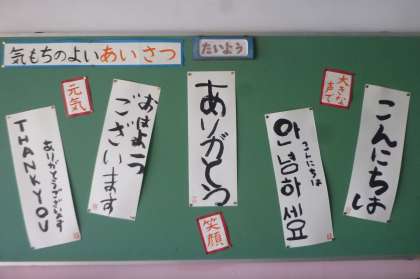 気もちのよいあいさつ
たいよう
元気
大きな
声で
THANK YOU
ありがとうございます
おはよう
ございます
ありがとう
안녕하세요
こんにちは
こんにちは
笑顔